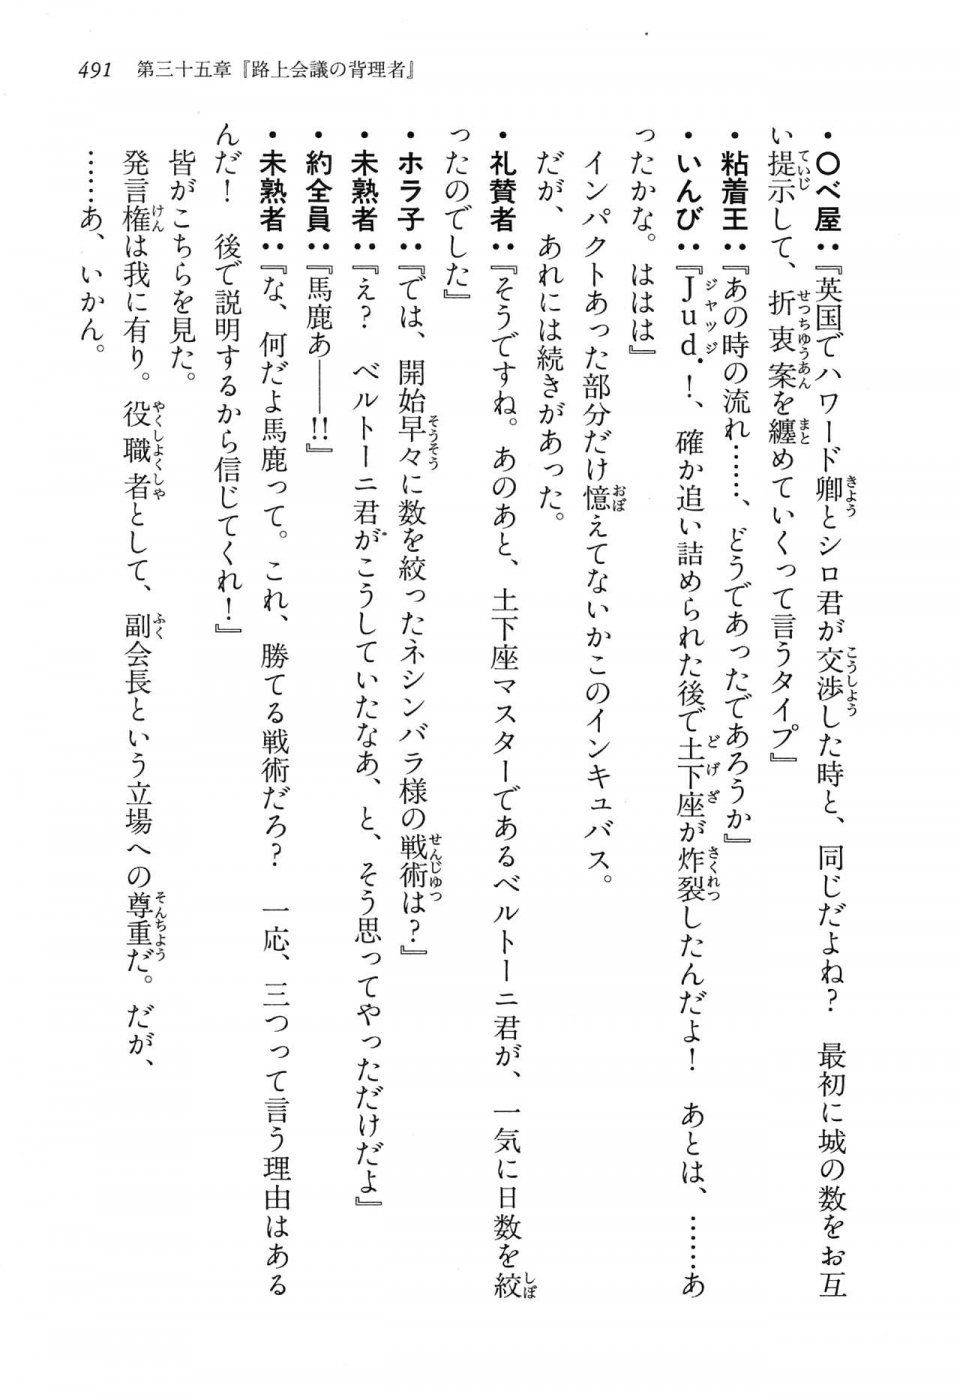 491 第三十五章『路上会議の背理者』
・〇べ屋：『英国でハワード卿とシロ君が交渉した時と、同じだよね？　最初に城の数をお互
い提示して、折衷案を纏めていくって言うタイプ』
・粘着王：『あの時の流れ……、どうであったであろうか』
・いんび：『Ｊｕｄ．！、確か追い詰められた後で土下座が炸裂したんだよ！　あとは、……あ
ったかな。ははは』
インパクトあった部分だけ憶えてないかこのインキュバス。
だが、あれには続きがあった。
・礼賛者：『そうですね。あのあと、土下座マスターであるベルトーニ君が、一気に日数を絞
ったのでした』
・ホラ子：『では、開始早々に数を絞ったネシンバラ様の戦術は？』
・未熟者：『え？　ベルトーニ君がこうしていたなあ、と、そう思ってやっただけだよ』
・約全員：『馬鹿あ――!!』
・未熟者：『な、何だよ馬鹿って。これ、勝てる戦術だろ？　一応、三つって言う理由はある
んだ！　後で説明するから信じてくれ！』
皆がこちらを見た。
発言権は我に有り。役職者として、副会長という立場への尊重だ。だが、
……あ、いかん。